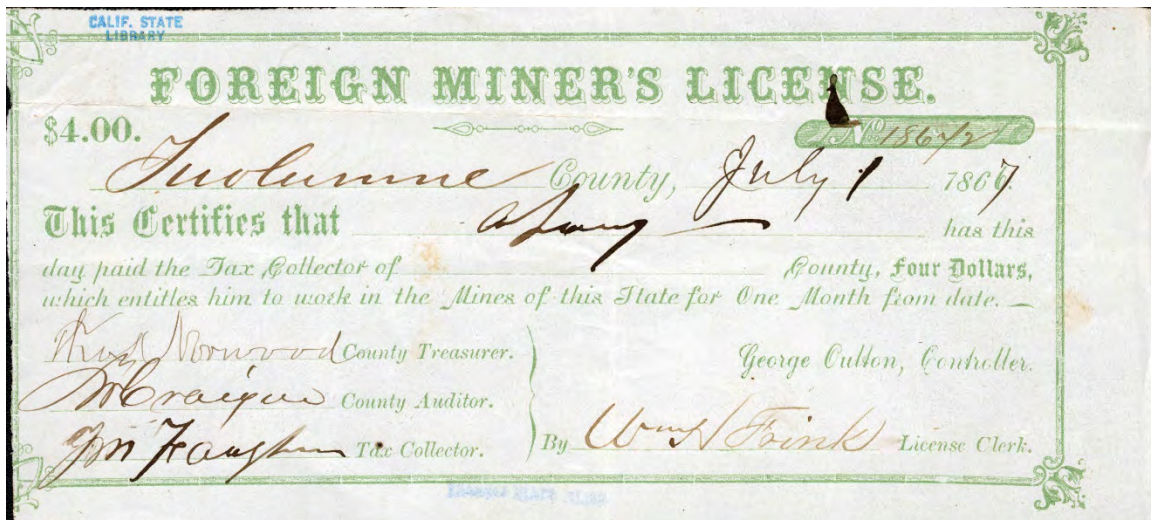 CALIF. STATE
LIBRARY
FOREIGN MINER'S LICENSE.
$4.00.
No. 18672
Tuolumne County, July 1 1867
This Certifies that has this
day paid the Tax Collector of County, Four Dollars,
which entitles him to work in the Mines of this State for One Month from date.
Norwood County Treasurer.
George Oulton, Controller.
County Auditor.
Tax Collector.
By Wm H Frink License Clerk.